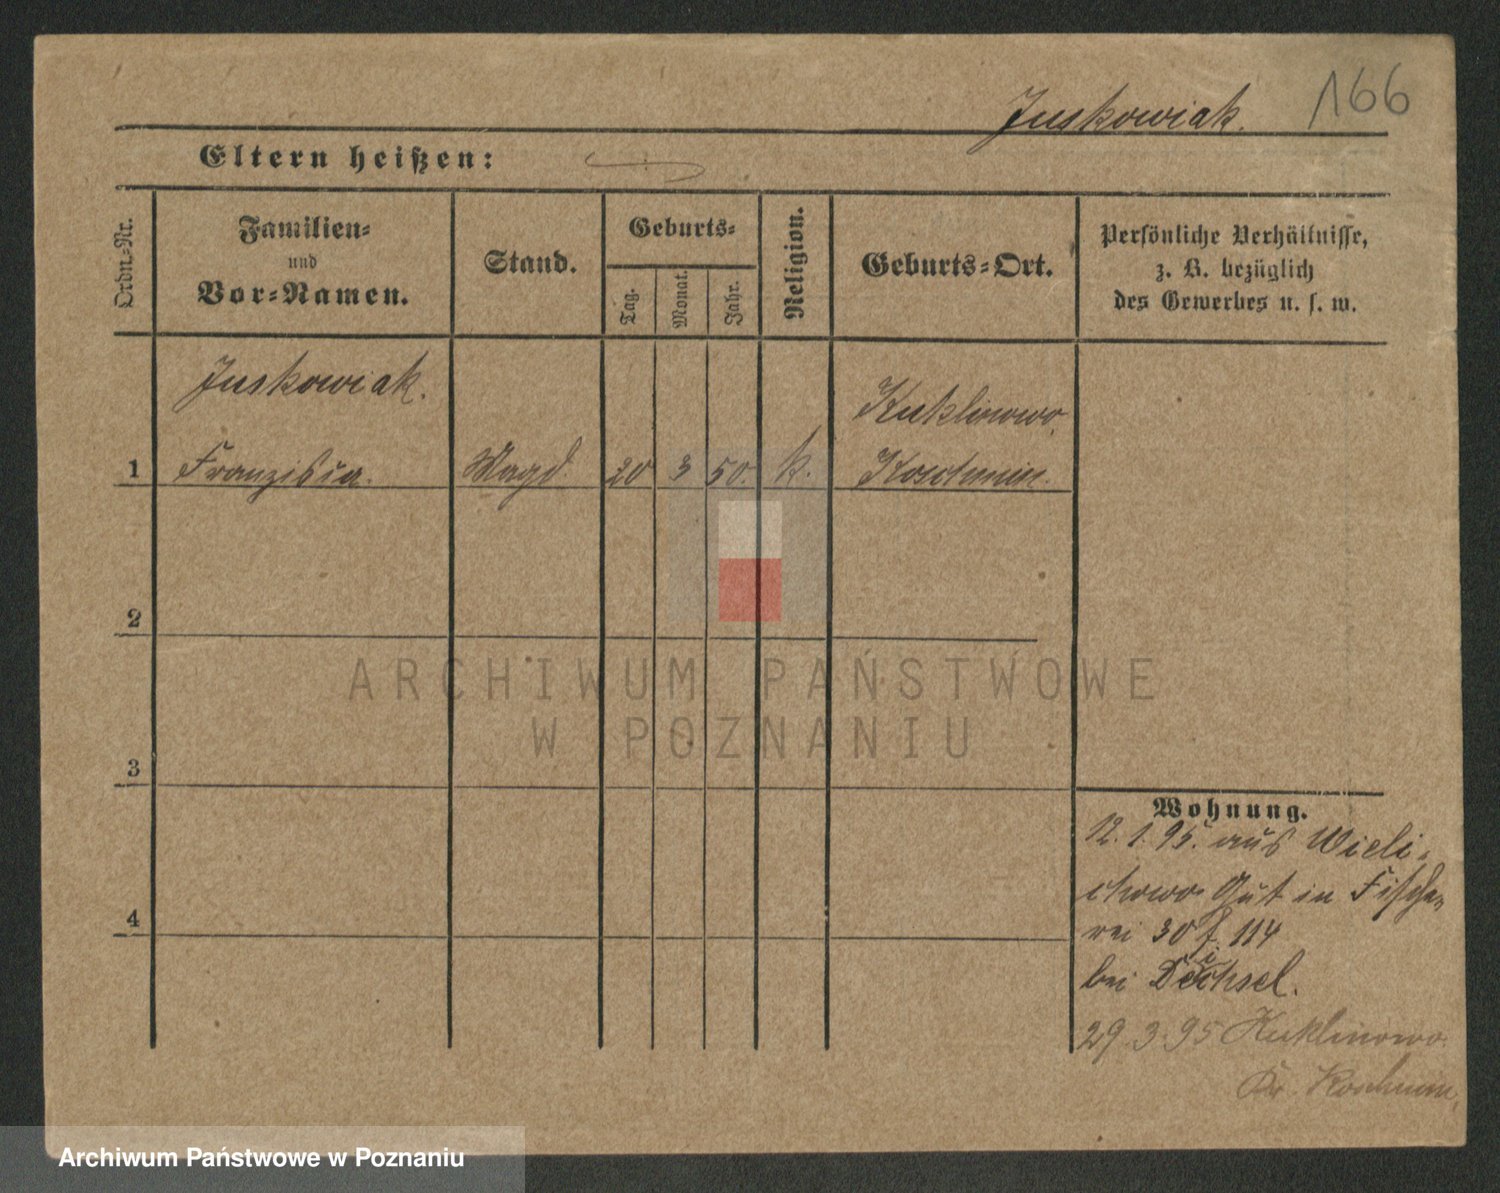 Juskowiak. 166
Eltern heißen:
Ordn.-Nr.
Familien-
und
Vor-Namen.
Stand.
Geburts-
Tag.
Monat.
Jahr.
Religion.
Geburts-Ort.
Persönliche Verhältnisse,
z. B. bezüglich
des Gewerbes u. s. w.
Juskowiak.
Kuklinowo,
1 Franziska. Magd 20 3 50. k. Koschmin.
2
ARCHIWUM PAŃSTWOWE
W POZNANIU
3
Wohnung.
12. 1. 95. aus Wieli-
chowo Gut in Fische-
4
rei 30 f. 114
bei Deichsel.
29. 3. 95 Kuklinowo
Kr. Koschmin,
Archiwum Państwowe w Poznaniu